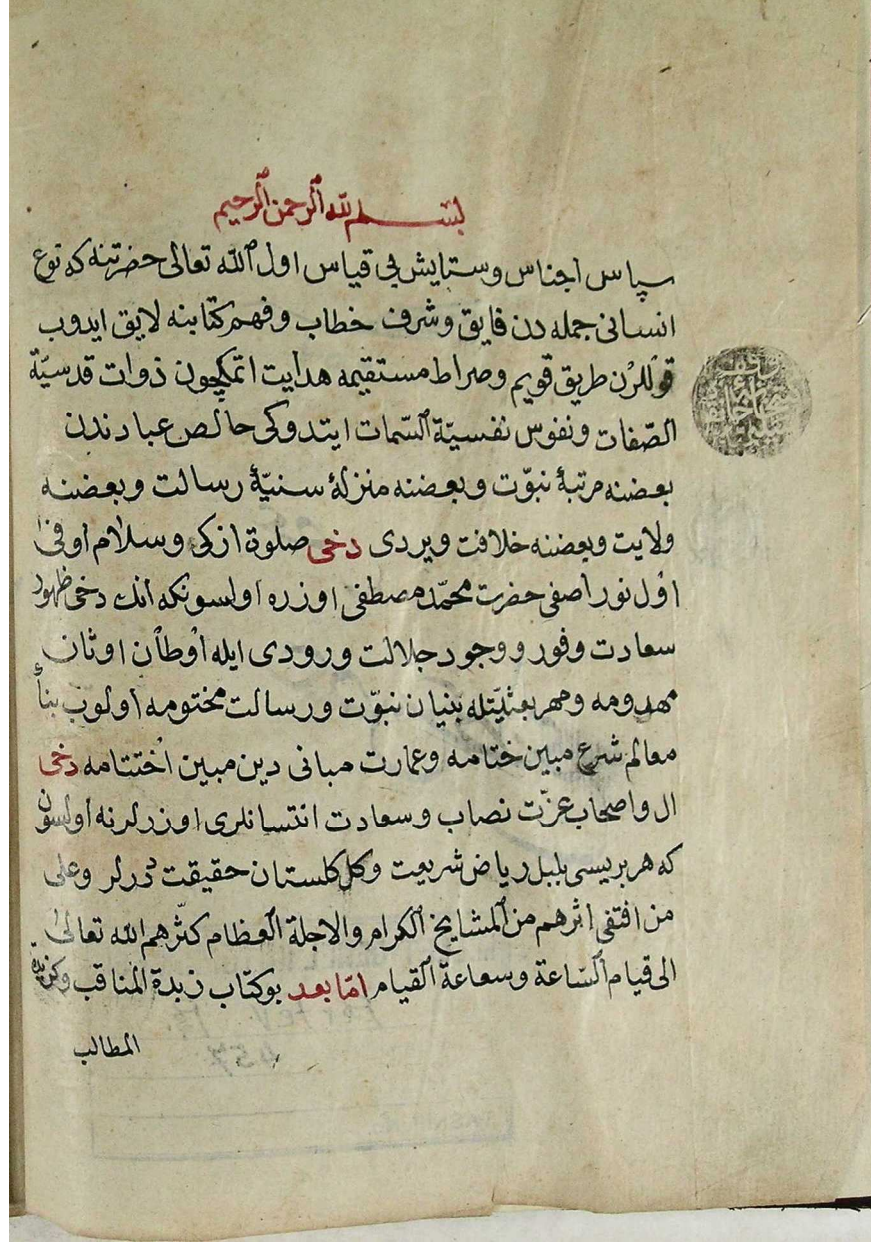 بسم الله الرحمن الرحيم
سپاس اجناس وستایش بی قیاس اول الله تعالی حضرتنه که نوع
انسانی جمله دن فایق وشرف خطاب وفهم کتابنه لایق ایدوب
قوللرن طریق قویم وصراط مستقیمه هدایت اتمکچون ذوات قدسیّة
الصّفات ونفوس نفسیّة السّمات ایتدوکی حالص عبادندن
بعضنه مرتبۀ نبوّت وبعضنه منزلۀ سنیّۀ رسالت وبعضنه
ولایت وبعضنه خلافت ویردی دخی صلوة ازکی وسلام اوفی
اول نور اصفی حضرت محمّد مصطفی اوزره اولسونکه انك دخی ظهور
سعادت وفور ووجود جلالت ورودی ایله اوطان اوثان
مهدومه ومهر بعثیّتله بنیان نبوّت ورسالت مختومه اولوب بنأ
معالم شرع مبین ختامه وعمارت مبانی دین مبین اختتامه دخی
ال واصحاب عزّت نصاب وسعادت انتسانلری اوزرلرنه اولسون
که هر بریسی بلبل ریاض شریعت وکل کلستان حقیقت درلر وعلی
من اقتفی اثرهم من المشایخ الکرام والاجلة العظام کثّرهم الله تعالی
الی قیام السّاعة وساعة القیام امّا بعد بو کتاب زبدة المناقب وکزیدۀ
المطالب